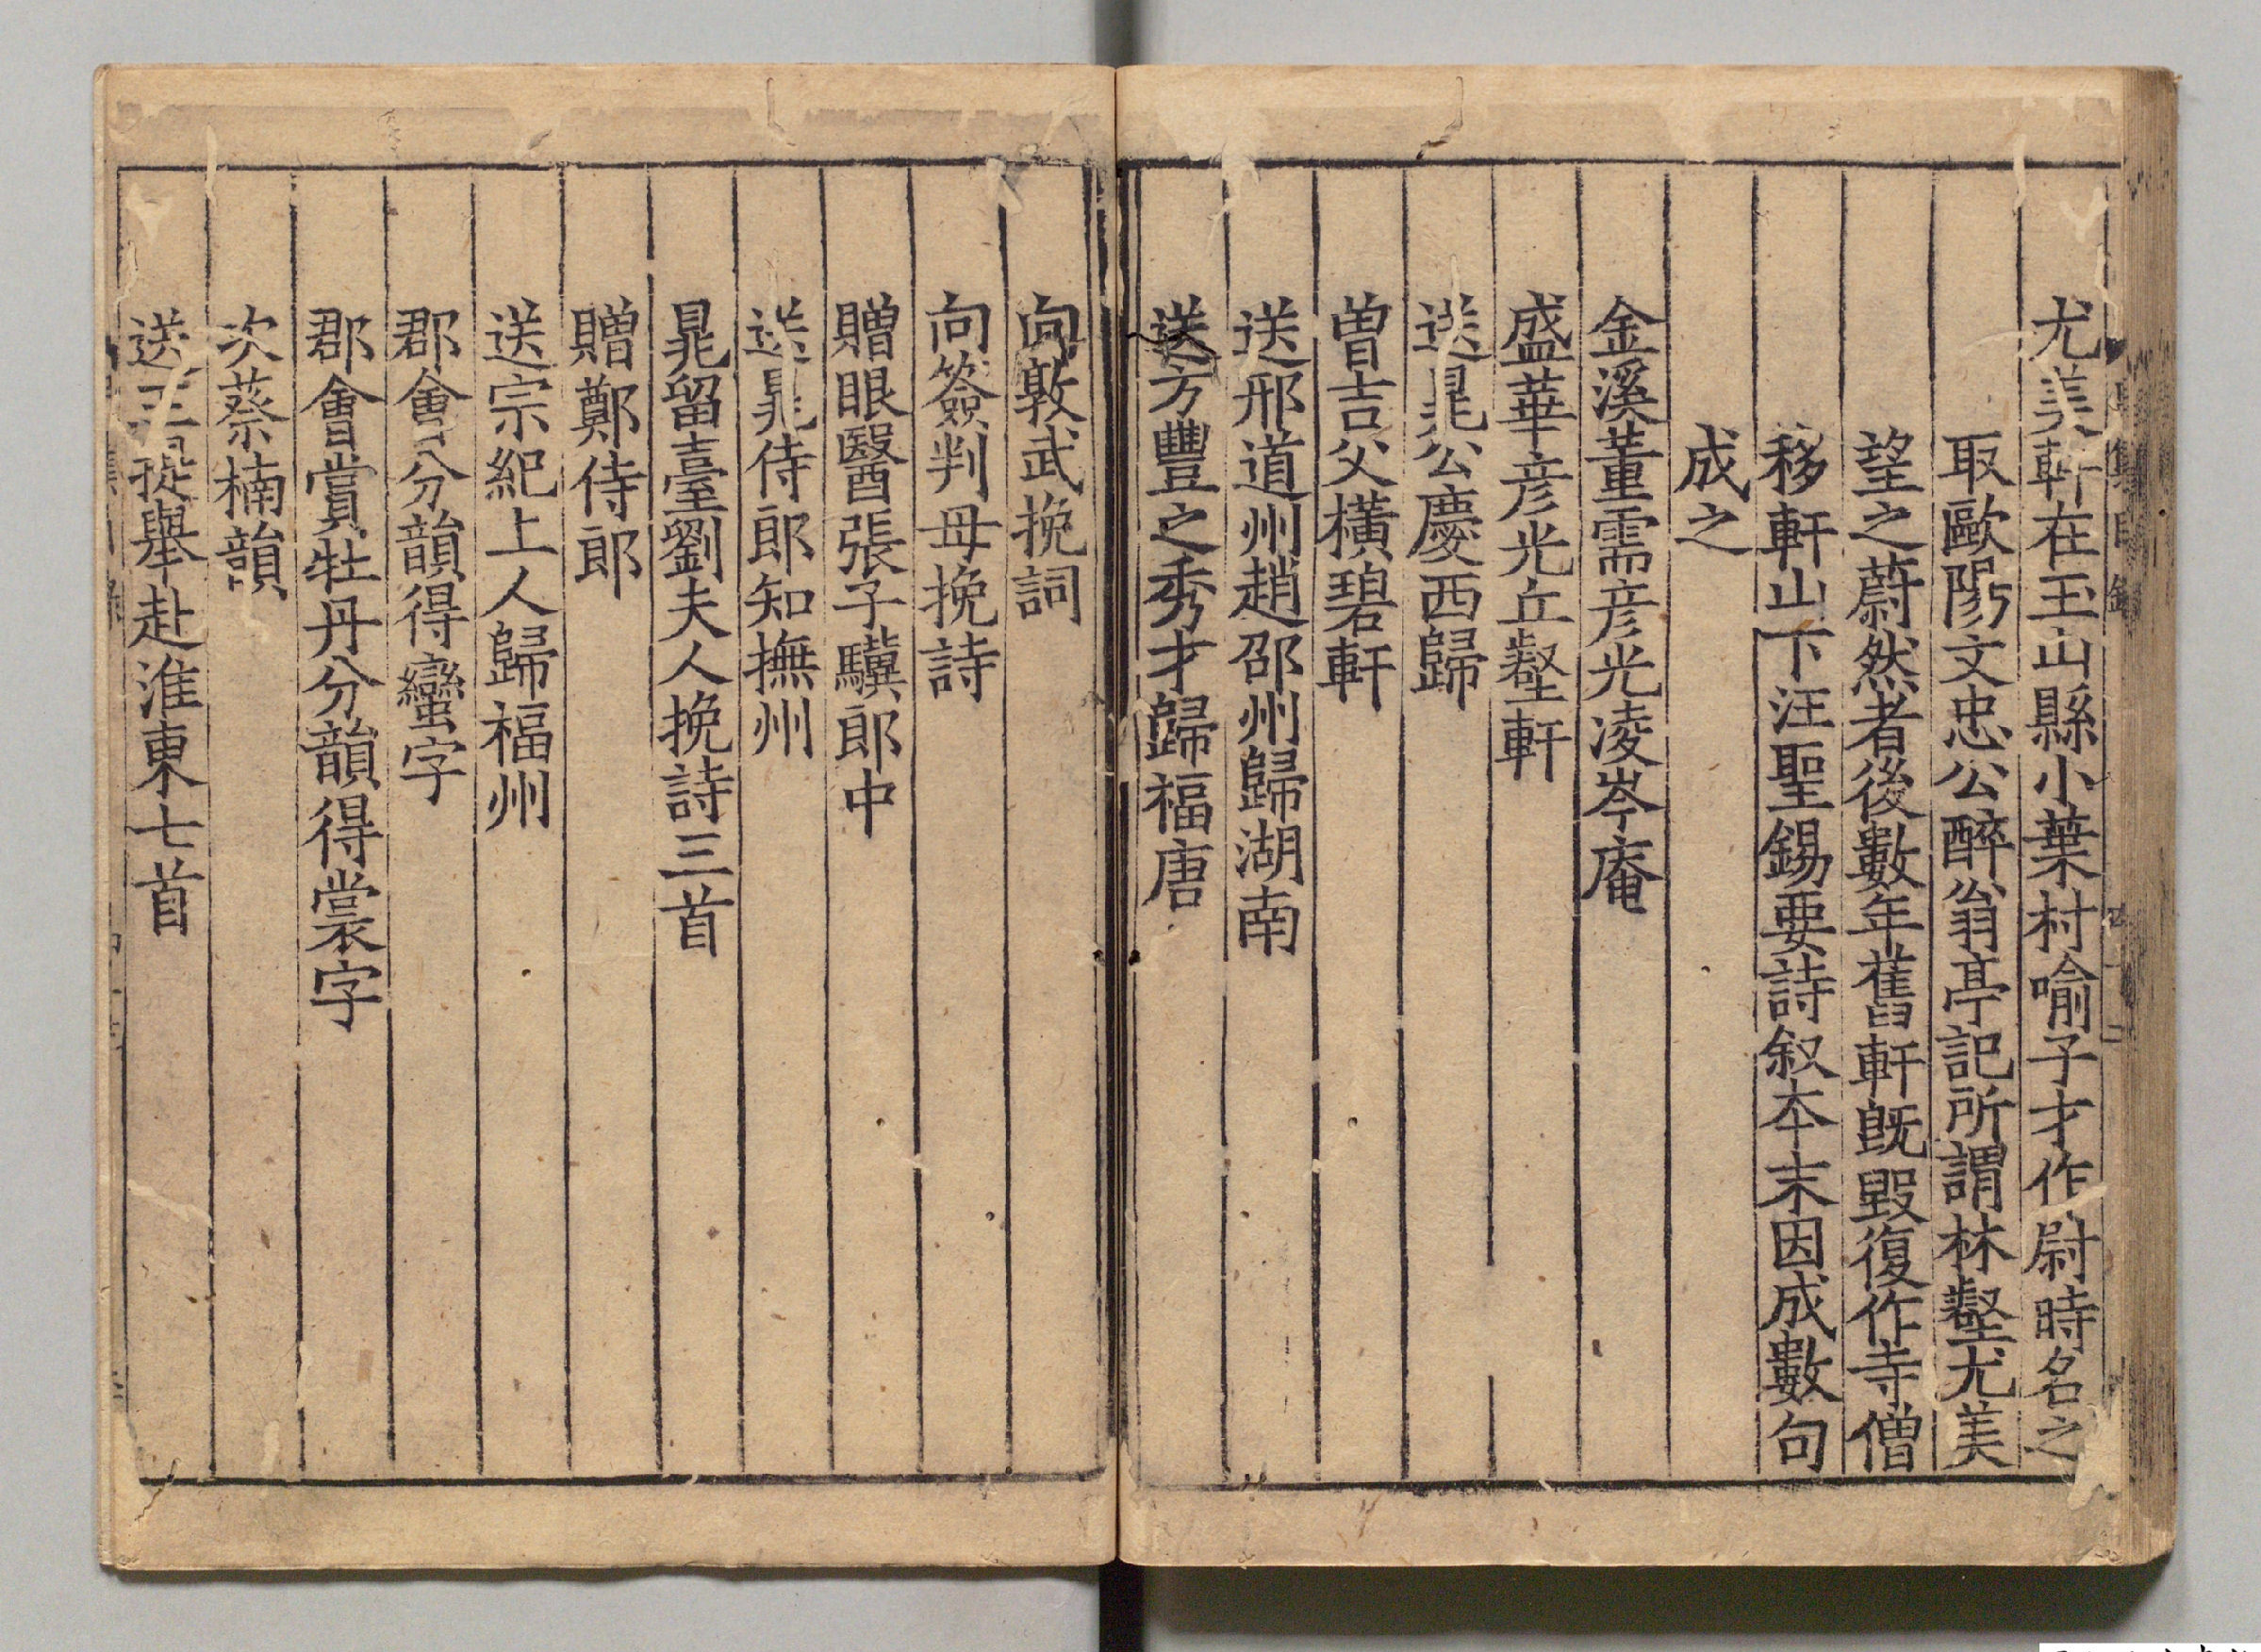 尤美軒在玉山縣小葉村喻子才作尉時名之
取歐陽文忠公醉翁亭記所謂林壑尤美
望之蔚然者後數年舊軒旣毀復作寺僧
移軒山下汪聖錫要詩叙本末因成數句
成之
金溪董需彦光凌岑庵
盛華彦光丘壑軒
送晁公慶西歸
曽吉父横碧軒
送邢道州趙邵州歸湖南
送方豐之秀才歸福唐
向敦武挽詞
向簽判母挽詩
贈眼醫張子驥郎中
送晁侍郎知撫州
晁留臺劉夫人挽詩三首
贈鄭侍郎
送宗紀上人歸福州
郡會分韻得蠻字
郡會賞牡丹分韻得裳字
次蔡楠韻
送王提舉赴淮東七首